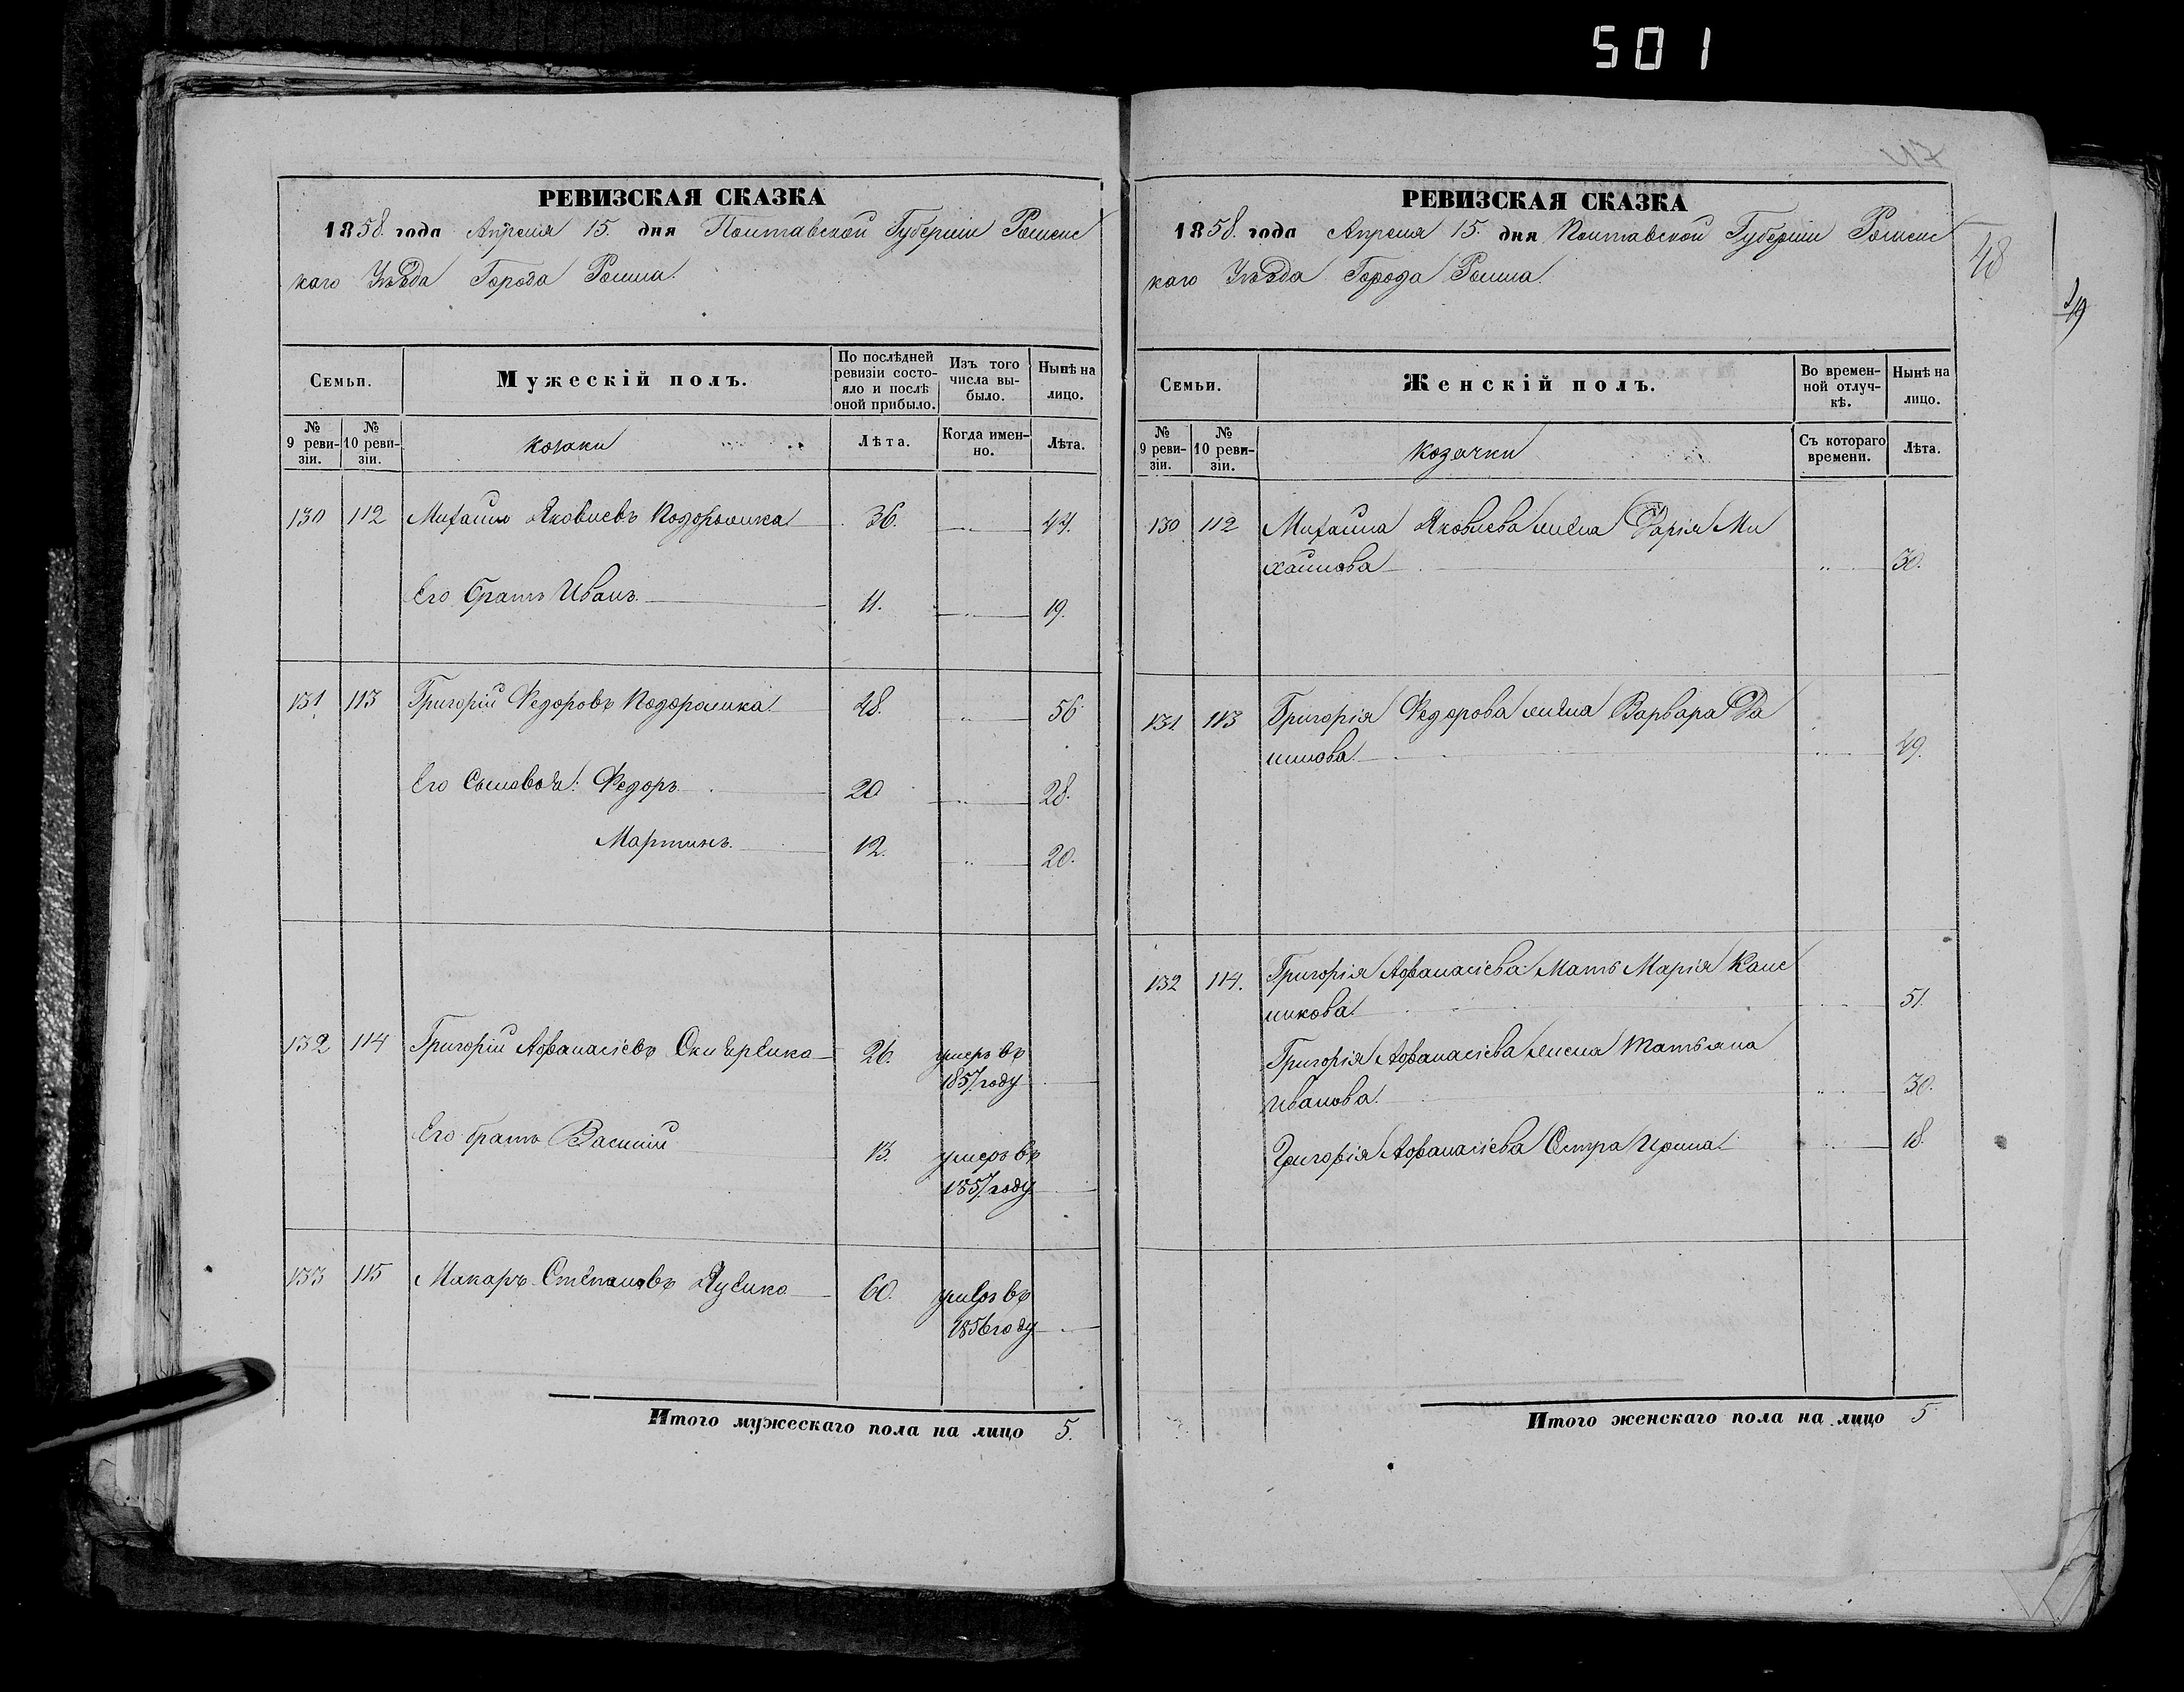 501
47
РЕВИЗСКАЯ СКАЗКА
1858. года Апреля 15. дня Полтавской Губерніи Роменс
каго Уѣзда Города Ромна.
Семьи.
Мужескій полъ.
По послѣдней
ревизіи состо-
яло и послѣ
оной прибыло.
Изъ того
числа вы-
было.
Нынѣ на
лицо.
№
9 реви-
зіи.
№
10 реви-
зіи.
козаки
Лѣта.
Когда имен-
но.
Лѣта.
130 112 Михаилъ Яковлевъ 36. 44.
Его братъ Иванъ. 11. 19.
131 113 Григорій Федоровъ 48. 56
Его Сыновья: Федоръ 20 28.
Мартинъ. 12. 20.
132 114 Григорій Афанасіевъ 26. умеръ въ
1857 году
Его братъ Василій 13. умеръ въ
1857 году
133 115 Макаръ Степановъ 60. умеръ въ
1856 году
Итого мужескаго пола на лицо 5.
РЕВИЗСКАЯ СКАЗКА
1858. года Апреля 15. дня Полтавской Губерніи Роменс
каго Уѣзда Города Ромна.
48
49
Семьи.
Женскій полъ.
Во времен-
ной отлуч-
кѣ.
Нынѣ на
лицо.
№
9 реви-
зіи.
№
10 реви-
зіи.
козачки
Съ котораго
времени.
Лѣта.
130 112 Михаила Яковлева жена Дарія Ми
хайлова 30.
131. 113 Григорія Федорова жена Варвара Да
нилова. 49.
132 114. Григорія Афанасіева Мать Марія
51.
Григорія Афанасіева жена Татьяна
Иванова. 30.
Григорія Афанасіева Сестра Ирина 18.
Итого женскаго пола на лицо 5